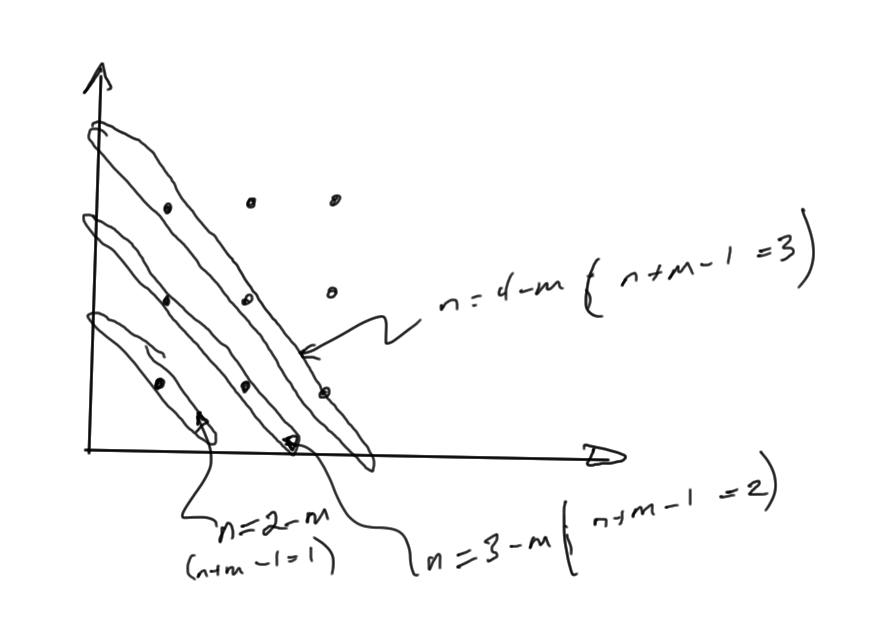 n = 4 - m ( n + m - 1 = 3 )
n = 3 - m ( n + m - 1 = 2 )
n = 2 - m
( n + m - 1 = 1 )